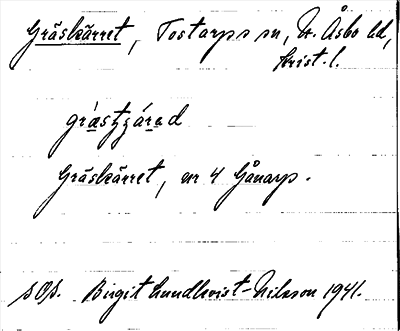 Gräskärret, Tostarps sn, N. Åsbo hd,
Krist. l.
Gräskärret, nr 4 Gånarp.
SOB. Birgit Lundkvist-Nilsson 1941.